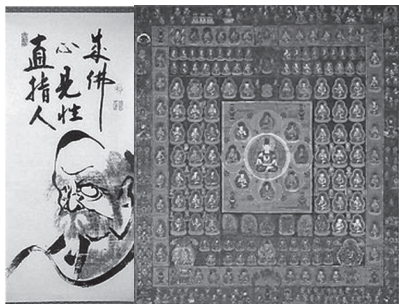 直指人
心見性
成佛